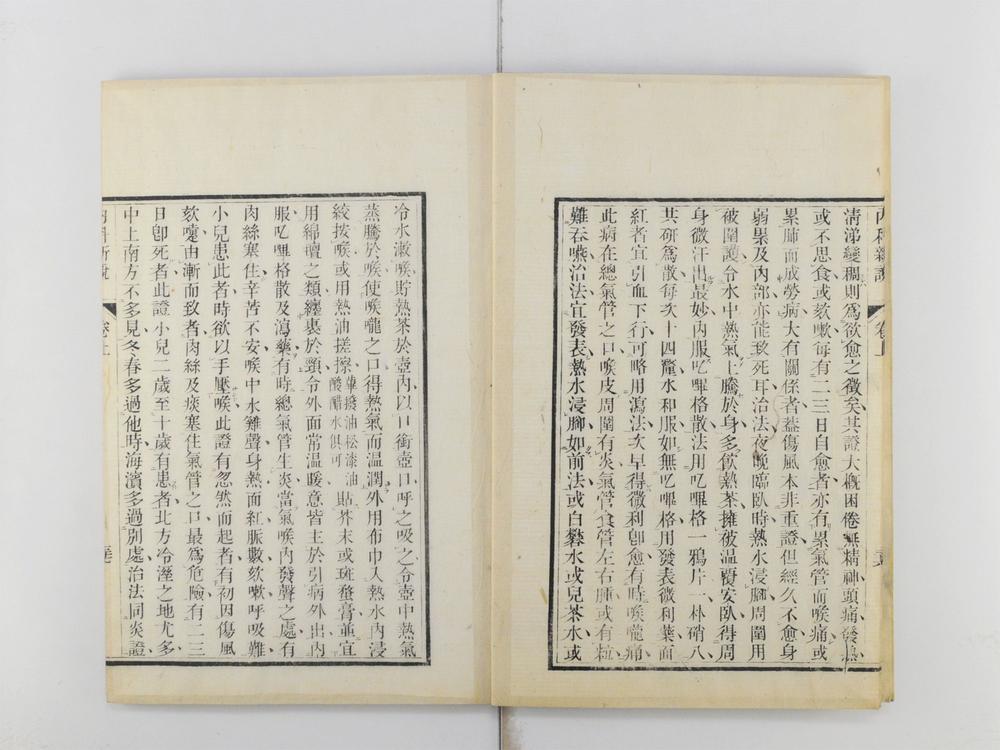 內科新說
卷上
清涕變稠則爲欲愈之徵矣其證大槪困倦無精神頭痛發熱
或不思食或欬嗽每有二三日自愈者亦有累氣管而喉痛或
累肺而成勞病大有關係者蓋傷風本非重證但經久不愈身
弱累及內部亦能致死耳治法夜晚臨臥時熱水浸腳周圍用
被圍護令水中熱氣上騰於身多飮熱茶擁被温覆安臥得周
身微汗出最妙內服㕤嗶格散法用㕤嗶格一鴉片一朴硝八
共研爲散每次十四釐水和服如無㕤嗶格用發表微利藥面
紅者宜引血下行可略用瀉法次早得微利卽愈有時喉嚨痛
此病在總氣管之口喉皮周圍有炎氣管食管左右腫或有粒
難吞嚥治法宜發表熱水浸腳如前法或白礬水或兒茶水或
冷水漱喉貯熱茶於壺內以口銜壺口呼之吸之令壺中熱氣
蒸騰於喉使喉嚨之口得熱氣而温潤外用布巾入熱水內浸
絞拔喉或用熱油搓擦萆撥油松漆油酸醋水俱可貼芥末或斑蝥膏並宜
用綿氊之類纏裹於頸令外面常温暖意皆主於引病外出內
服㕤嗶格散及瀉藥有時總氣管生炎當氣喉內發聲之處有
肉絲塞住辛苦不安喉中水雞聲身熱面紅脈數欬嗽呼吸難
小兒患此者時欲以手壓喉此證有忽然而起者有初因傷風
欬嚏由漸而致者肉絲及痰塞住氣管之口最爲危險有二三
日卽死者此證小兒二歲至十歲有患者北方冷溼之地尤多
中上南方不多見冬春多過他時海濱多過別處治法同炎證
內科新說
卷上